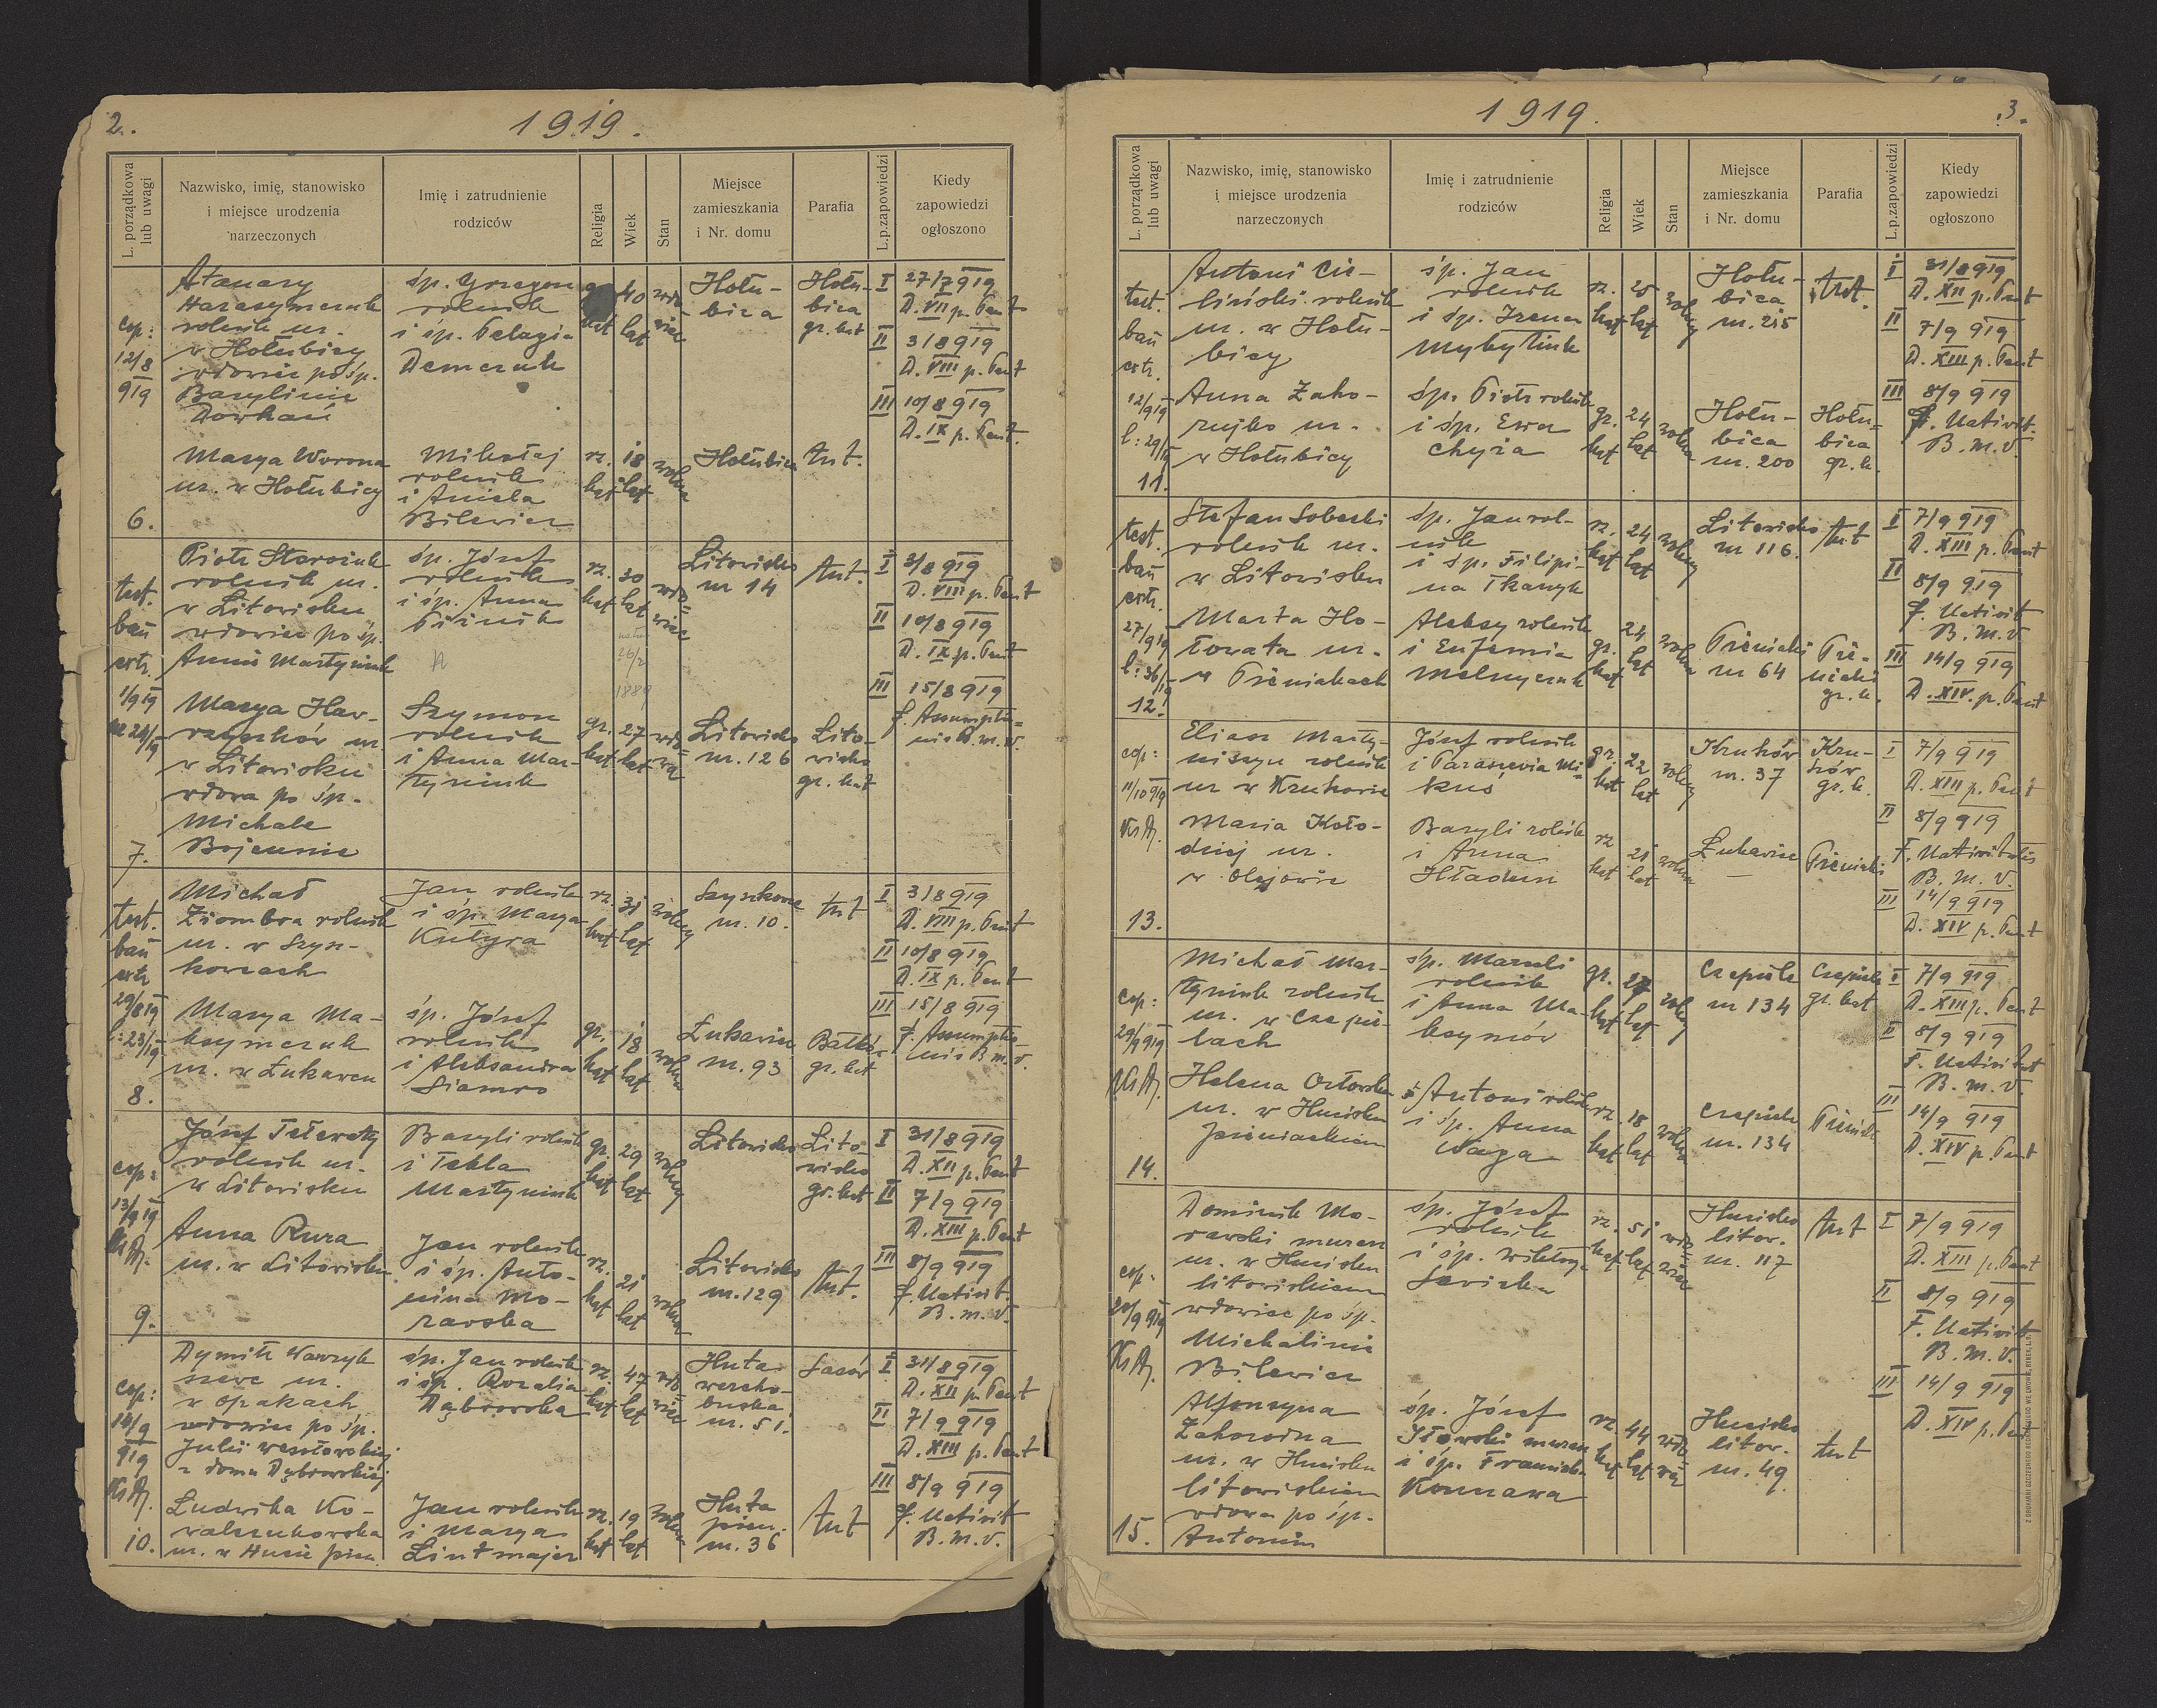 2.
1919.
L. porządkowa lub uwagi
Nazwisko, imię, stanowisko
i miejsce urodzenia
narzeczonych
Imię i zatrudnienie
rodziców
Religia
Wiek
Stan
Miejsce
zamieszkania
i Nr. domu
Parafia
L.p.zapowiedzi
Kiedy
zapowiedzi
ogłoszono
cop:
12/8
919
6.
Atanazy
Harasymczuk
rolnik ur.
w Hołubicy
wdowiec po śp.
Bazylinie
Dowhań
śp. Grzegorz
rolnik
i śp. Pelagia
Demczuk
kat
40
lat
wdo
wiec
Hołu-
bica
Hołu-
bica
gr. kat
I 27/7 919
D. VII p. Pent
II 3/8 919
D. VIII p. Pent
III 10/8 919
D. IX p. Pent.
Marya Worona
ur. w Hołubicy
Mikołaj
rolnik
i Aniela
Bilewicz
rz.
kat
18
lat
wolna
Hołubica
tut.
test.
bań
extr.
1/9 19
7.
Piotr
rolnik ur.
w Litowisku
wdowiec po śp.
Annie Martyniuk
śp. Józef
rolnik
i śp. Anna
rz.
kat
30
lat
wdo=
wiec
26/2
1889
Litowisko
nr 14
tut.
I 3/8 919
D. VIII p. Pent
II 10/8 919
D. IX p. Pent
III 15/8 919
f. Assumptio=
nis B. m. V.
Marya Haw-
ur.
w Litowisku
wdowa po śp.
Michale
Szymon
rolnik
i Anna Mar-
tyniuk
gr.
kat
27
lat
wdo=
wa
Litowisko
nr. 126
Lito-
wisko
gr. kat
test.
bań
extr
29/8 19
l: 23/19
8.
Michał
Ziombra rolnik
ur. w Szysz-
kowcach
Jan rolnik
i śp. Marya
Kułyra
rz.
kat
31
lat
wolny
Szyszkowce
nr. 10.
tut
I 3/8 919
D. VIII p. Pent
II 10/8 919
D. IX p. Pent
III 15/8 919
f. Assumptio-
nis B m. V.
Marya Ma-
ksymczuk
ur. w Łukawcu
śp. Józef
rolnik
i Aleksandra
Siamro
gr.
kat
18
lat
wolna
Łukawiec
nr. 93
Bałków
gr. kat
cop:
13/9 19
9.
Józef
rolnik ur.
w Litowisku
Bazyli rolnik
i Tekla
Martyniuk
gr.
kat
29
lat
wolny
Litowisko
Lito-
wisko
gr. kat
I 31/8 919
D. XII p. Pent
II 7/9 919
D. XIII p. Pent
III 8/9 919
f. Nativit.
B. m. V.
Anna Rura
ur. w Litowisku
Jan rolnik
i śp. Anto-
nina Mo-
rawska
rz.
kat
21
lat
wolna
Litowisko
nr. 129
tut.
cop:
14/9
919
10.
Dymitr Wawryk
szewc ur.
w Opakach
wdowiec po śp.
Julii Wesołowskiej
z domu Dąbrowskiej
śp. Jan rolnik
i śp. Rozalia
Dąbrowska
rz.
kat
47
lat
wdo
wiec
Huta
wercho-
buska
nr. 51.
Sasów
I 31/8 919
D. XII p. Pent
II 7/9 919
D. XIII p. Pent
III 8/9 919
f. Nativit
B. m. V.
Ludwika Ko-
walczukowska
ur. w Hucie pien.
Jan rolnik
i Marya
Lintmajer
rz.
kat
19
lat
wolna
Huta
pien.
nr. 36
tut
3.
1919.
L. porządkowa lub uwagi
Nazwisko, imię, stanowisko
i miejsce urodzenia
narzeczonych
Imię i zatrudnienie
rodziców
Religia
Wiek
Stan
Miejsce
zamieszkania
i Nr. domu
Parafia
L.p.zapowiedzi
Kiedy
zapowiedzi
ogłoszono
test.
bań
extr.
12/9 19
l: 29/19
11.
Antoni Cie-
liński rolnik
ur. w Hołu-
bicy
śp. Jan
rolnik
i śp. Irena
Mykytiuk
rz.
kat
25
lat
wolny
Hołu-
bica
nr. 215
tut.
I 31/8 919
D. XII p. Pent
II 7/9 919
D. XIII p. Pent
III 8/9 919
f. Nativit.
B. m. V.
Anna Zaho-
rujko ur.
w Hołubicy
śp. Piotr rolnik
i śp. Ewa
Chyża
gr.
kat
24
lat
wolna
Hołu-
bica
nr. 200
Hołu-
bica
gr. k.
test.
bań
extr.
27/9 19
l: 36/19
12.
Stefan Sobecki
rolnik ur.
w Litowisku
śp. Jan rol-
nik
i śp. Filipi-
na Tkaczyk
rz.
kat
24
lat
wolny
Litowisko
nr 116.
tut
I 7/9 919
D. XIII p. Pent
II 8/9 919
f. Nativit
B. m. V.
III 14/9 919
D. XIV. p. Pent
Marta Ho-
łowata ur.
w Pieniakach
Aleksy rolnik
i Eufemia
Melnyczuk
gr.
kat
24
lat
wolna
Pieniaki
nr 64
Pie-
niaki
gr. k.
cop:
11/10 919
13.
Eliasz Marty-
niszyn rolnik
ur w Kruhowie
Józef rolnik
i Paraszewia Mi-
kuś
gr.
kat
22
lat
wolny
Kruhów
nr. 37
Kru-
hów
gr. k.
I 7/9 919
D. XIII p. Pent
II 8/9 919
F. Nativitatis
B. M. V.
III 14/9 919
D. XIV p. Pent
Maria Koło-
dziej ur.
w Olejowie
Bazyli rolnik
i Anna
Hładun
rz
kat
21
lat
wolna
Łukawiec
Pieniaki
cop:
29/9 919
14.
Michał Mar-
tyniuk rolnik
ur. w Czepie-
lach
śp. Marceli
rolnik
i Anna Ma-
ksymów
gr.
kat
27
lat
wolny
Czepiele
nr 134
Czepiele
gr. kat
I 7/9 919
D. XIII p. Pent
II 8/9 919
F. Nativitat
B. m. V.
III 14/9 919
D. XIV p. Pent
Helena Orłowska
ur. w Hucisku
pieniackiem
Antoni rolnik
i śp. Anna
Waga
rz.
kat
18
lat
wolna
Czepiele
nr. 134
Pieniaki
cop:
20/9 919
15.
Dominik Mo-
rawski murarz
ur. w Hucisku
litowiskiem
wdowiec po śp.
Michalinie
Bilewicz
śp. Józef
rolnik
i śp. Wiktorya
Sawicka
rz.
kat
51
lat
wdo
wiec
Hucisko
litow.
nr. 117
tut
I 7/9 919
D. XIII p. Pent
II 8/9 919
F. Nativit
B. M. V.
III 14/9 919
D. XIV p. Pent
Alfonsyna
Zahorodna
ur. w Hucisku
litowiskiem
wdowa po śp.
Antonim
śp. Józef
Iłowski murarz
i śp. Franciszka
rz.
kat
44
lat
wdo
wa
Hucisko
litow.
nr. 49
tut